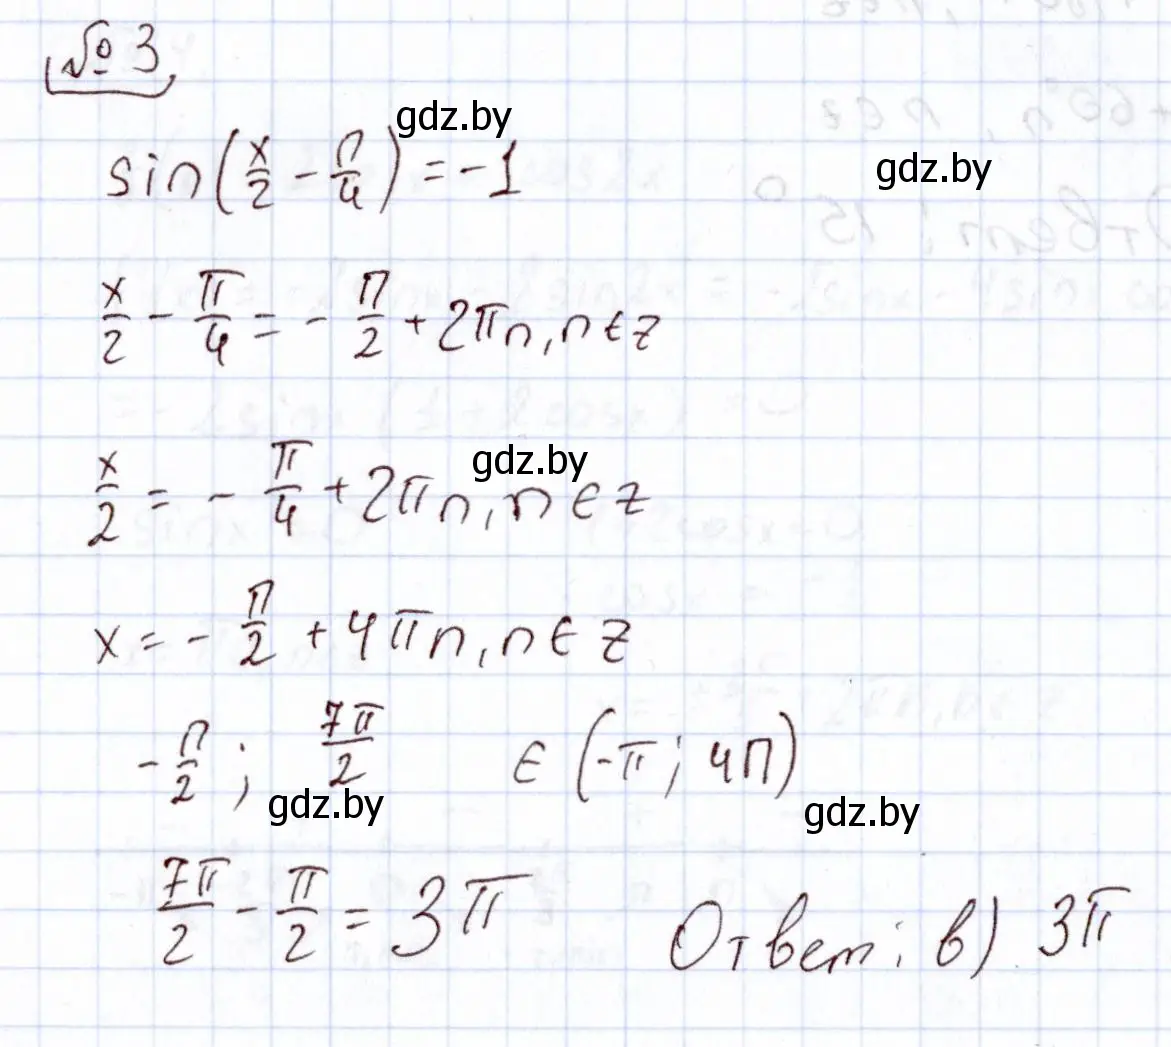 № 3
gdz.by
sin(x/2 - π/4) = -1
gdz.by
x/2 - π/4 = - π/2 + 2πn, n ∈ z
gdz.by
x/2 = - π/4 + 2πn, n ∈ z
x = - π/2 + 4πn, n ∈ z
- π/2 ; 7π/2 ∈ (-π; 4π)
gdz.by gdz.by
7π/2 - π/2 = 3π Ответ: в) 3π